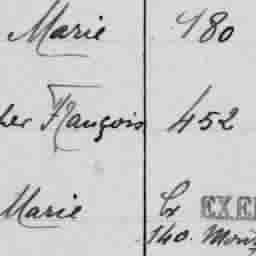 Marie 480
her François 452
Marie Cr EXE
140. Mori